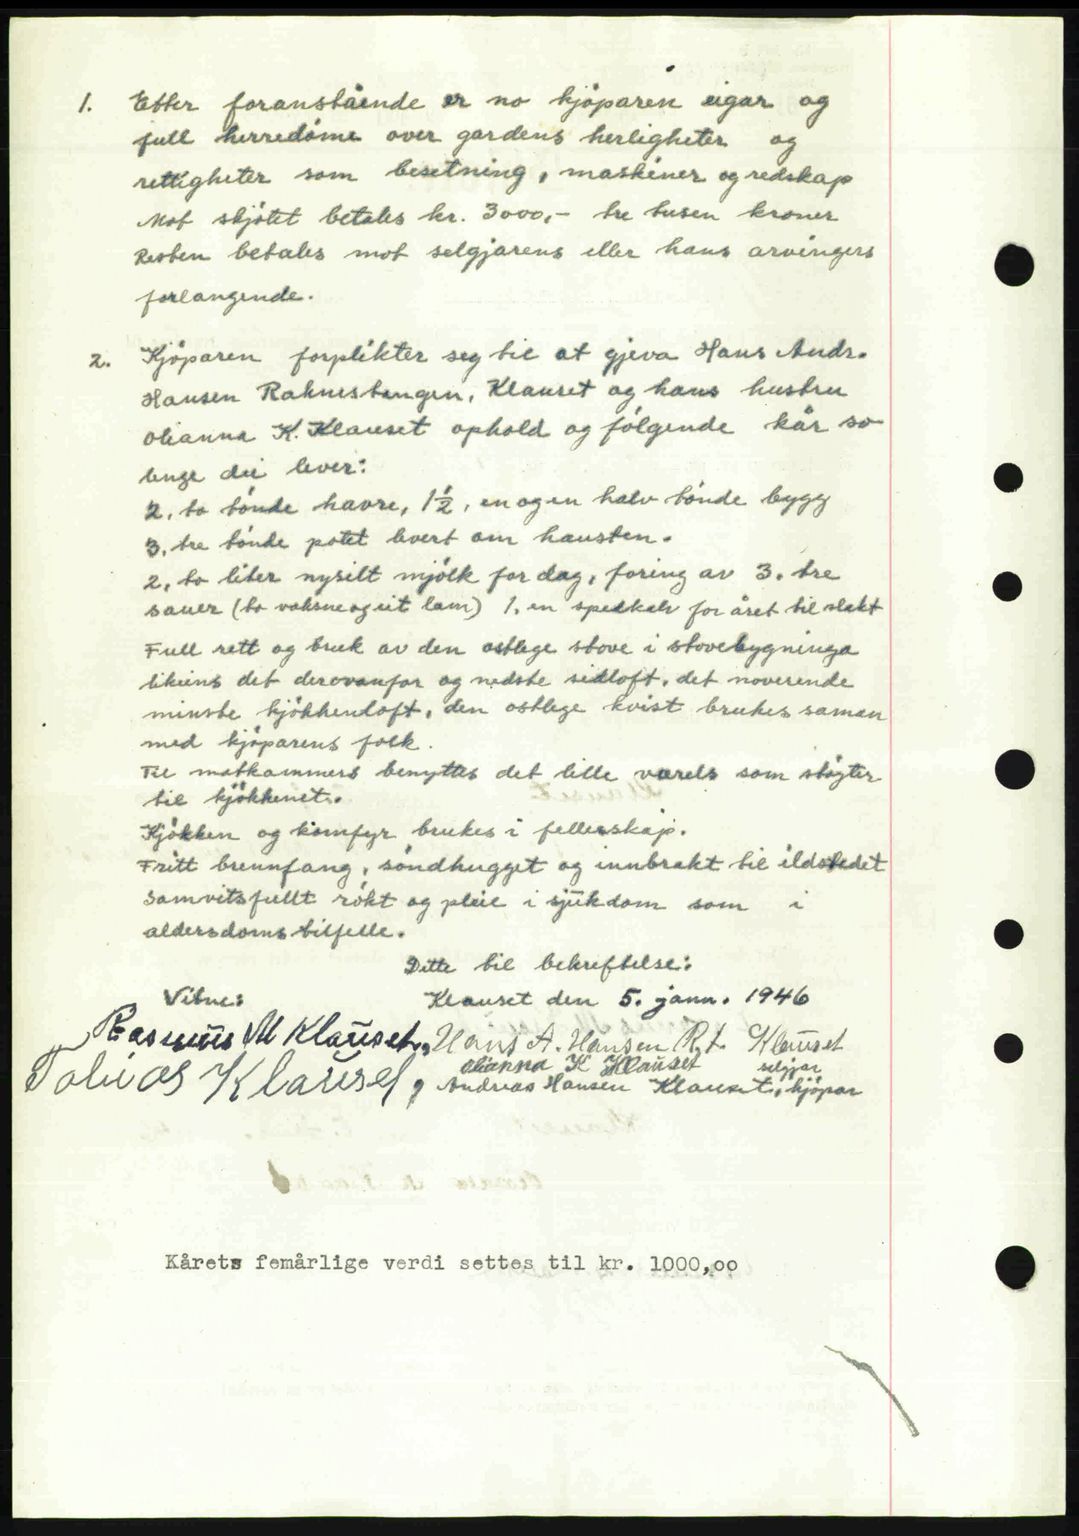 1. Etter foranstående er no kjöparen eigar og
full herredöme over gardens herligheter og
rettigheter som besetning, maskiner og redskap
Mot skjötet betales kr. 3000,- tre tusen kroner
Resten betales mot selgjarens eller hans arvingers
forlangende.
2. Kjöparen forplikter seg til at gjeva Hans Andr.
Hansen Raknestangen, Klauset og hans hustru
Olianna K. Klauset ophold og fölgende kår so
lenge dei lever:
2, to tönde havre, 1½, en og en halv tönde bygg
3, tre tönde potet levert om hausten.
2, to liter nysilt mjölk for dag, foring av 3. tre
sauer (to voksne og eit lam) 1. en spedkalv for året til slakt
Full rett og bruk av den østlege stove i stovebygninga
likeins det derovanfor og nedste sidloft, det noverende
minste kjökkenloft, den østlege kvist brukes saman
med kjöparens folk.
Til matkammers benyttes det lille værels som stöyter
til kjökkenet.
Kjökken og komfyr brukes i fellesskap.
Fritt brennfang, söndhugget og innbrakt til ildstedet
Samvitsfullt rökt og pleie i sjukdom som i
aldersdoms tilfelle.
Dette til bekreftelse:
Vitne: Klauset den 5. jann. 1946
Rasmus M Klauset, Hans A. Hansen R.t. Klauset
Olianna K Klauset selgjar
Tobias Klauset, Andreas Hansen Klauset, kjöpar
Kårets femårlige verdi settes til kr. 1000,oo